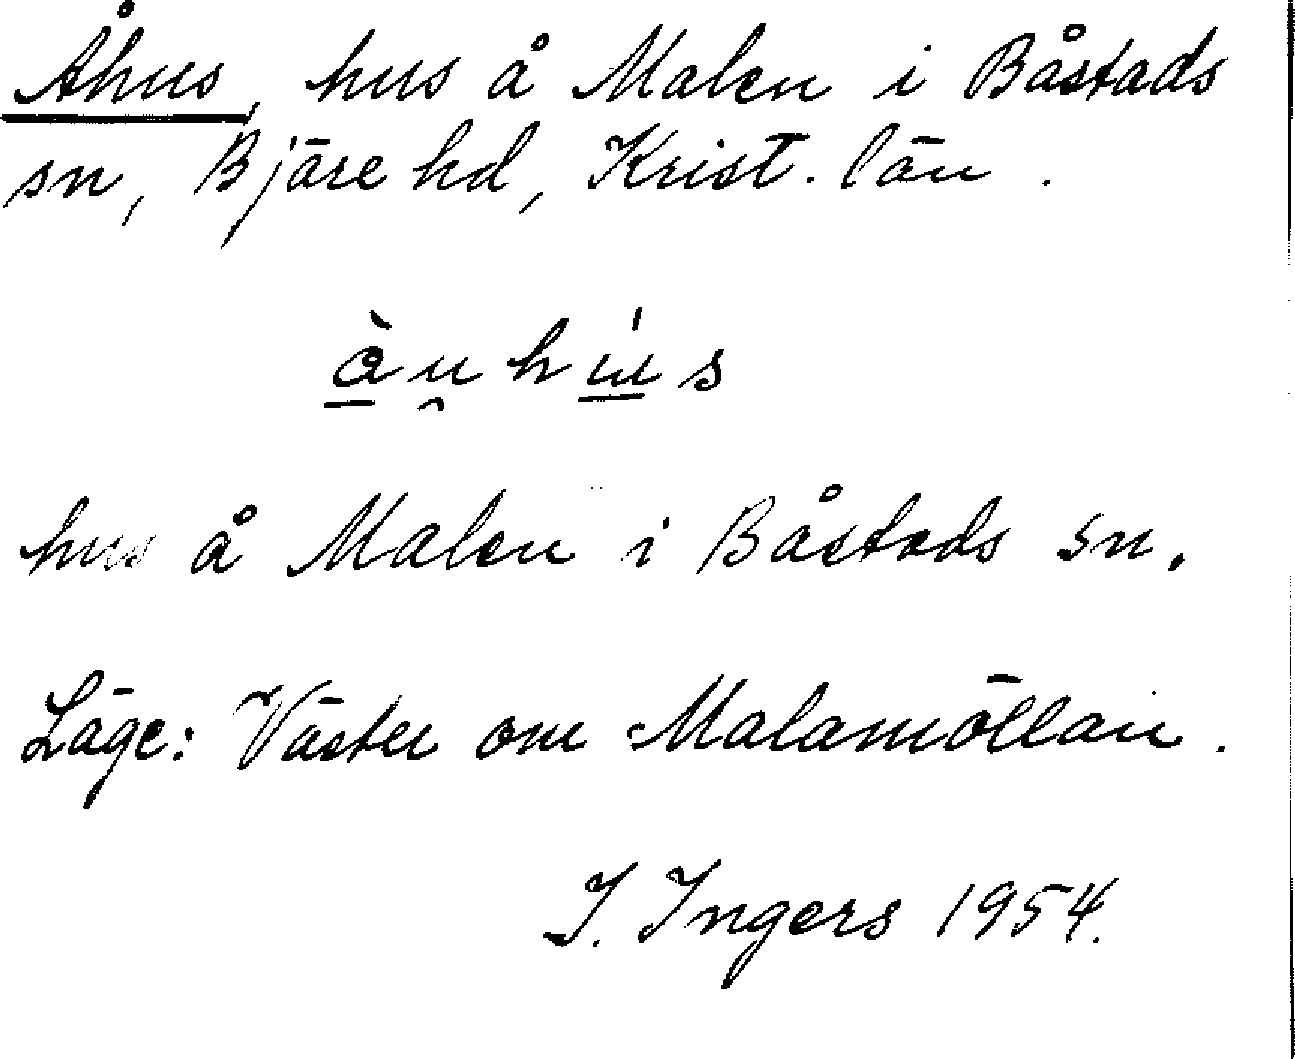 Åhus, hus å Malen i Båstads
sn, Bjäre hd, Krist. län.
hus å Malen i Båstads sn.
Läge: Väster om Malamöllan.
I. Ingers 1954.